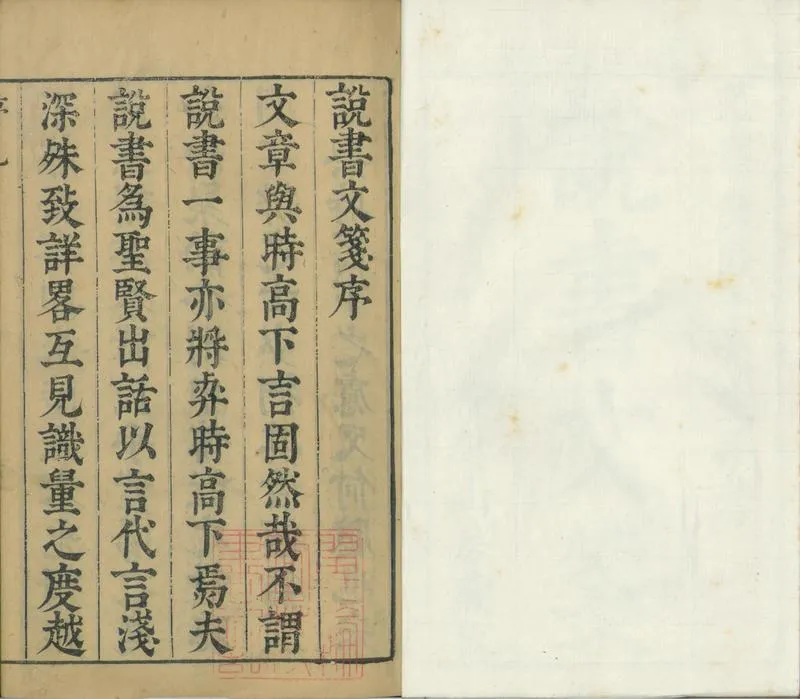 說書文箋序
文章與時高下言固然哉不謂
說書一事亦將弈時高下焉夫
說書爲聖賢出話以言代言淺
深殊致詳畧互見識量之度越